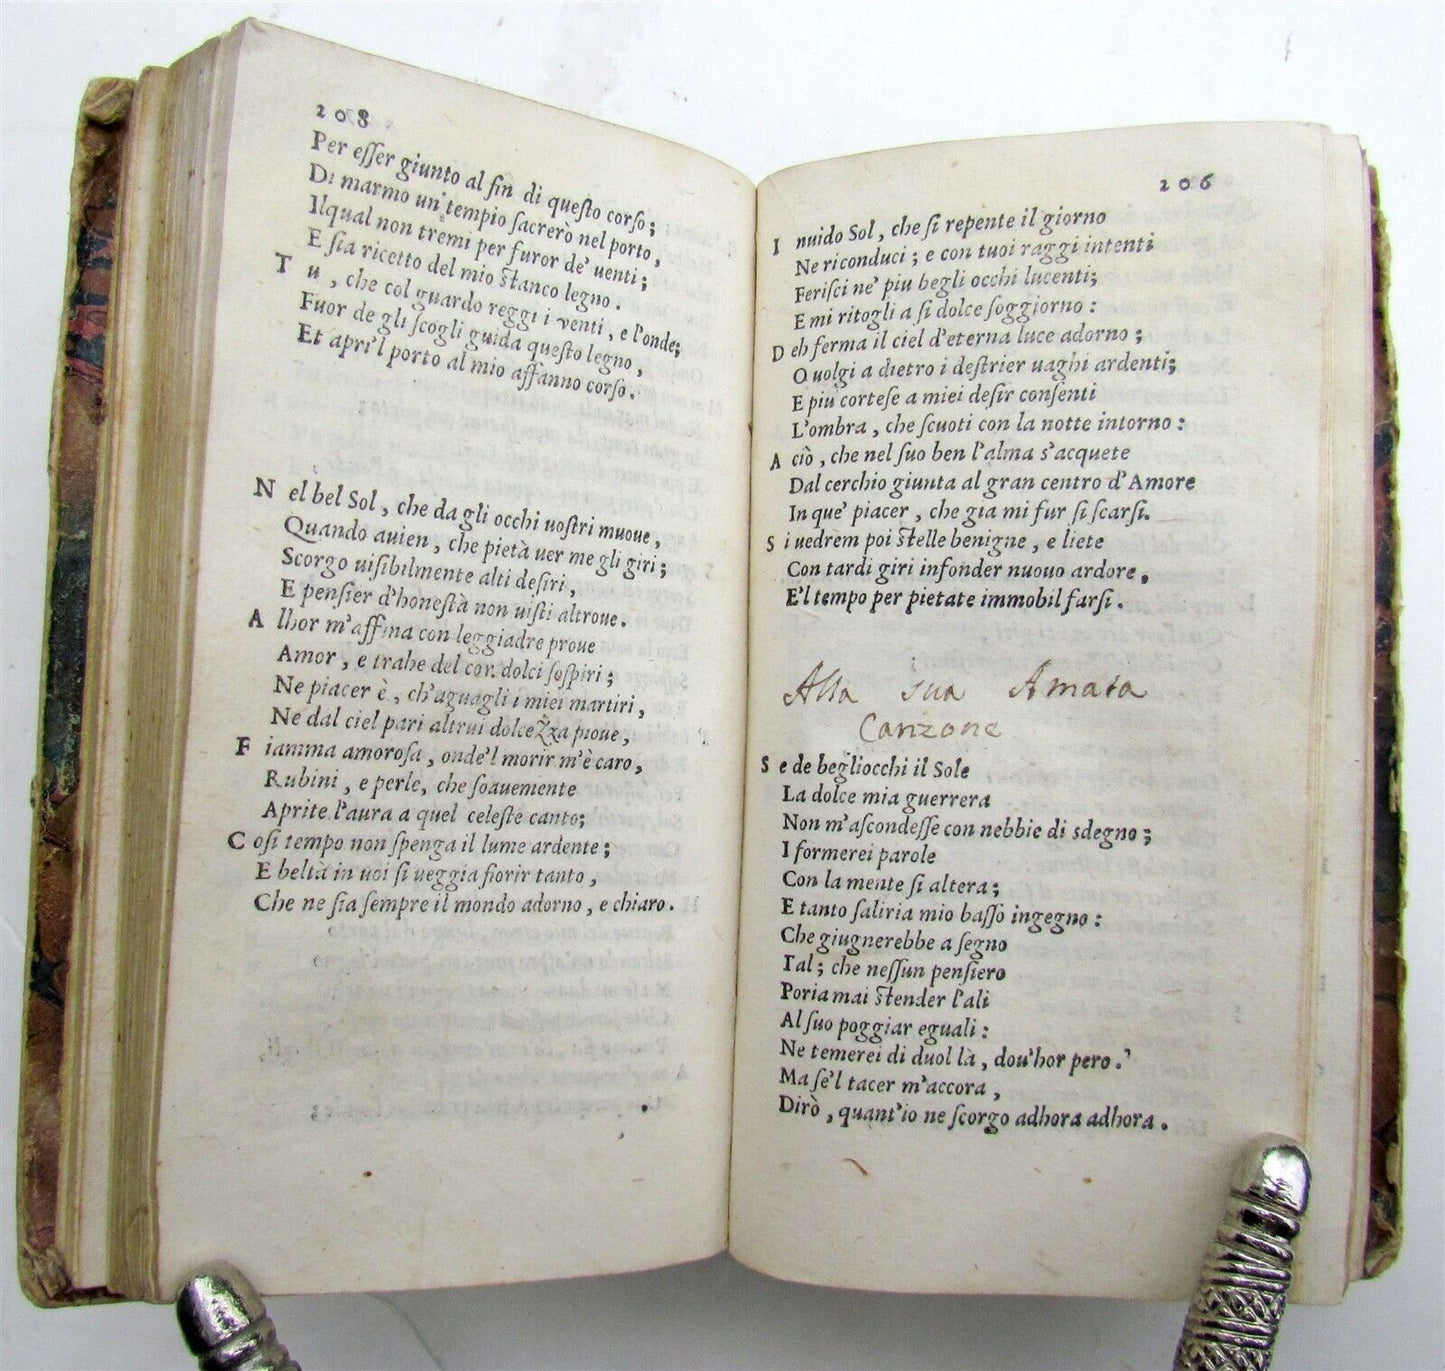 208
Per eſſer giunto al fin di queſto corſo;
Di marmo un' tempio ſacrerò nel porto,
Ilqual non tremi per furor de' uenti;
E ſia ricetto del mio ſtanco legno.
T u, che col guardo reggi i venti, e l'onde;
Fuor de gli ſcogli guida queſto legno,
Et apri'l porto al mio affanno corſo.
N el bel Sol, che da gli occhi uoſtri muoue,
Quando auien, che pietà uer me gli giri;
Scorgo uiſibilmente alti deſiri,
E penſier d'honeſtà non uiſti altroue.
A lhor m'affina con leggiadre proue
Amor, e trahe del cor dolci ſoſpiri;
Ne piacer è, ch'aguagli i miei martiri,
Ne dal ciel pari altrui dolcezza pioue,
F iamma amoroſa, onde'l morir m'è caro,
Rubini, e perle, che ſoauemente
Aprite l'aura a quel celeſte canto;
C oſi tempo non ſpenga il lume ardente;
E beltà in uoi ſi ueggia fiorir tanto,
Che ne ſia ſempre il mondo adorno, e chiaro.
206
I nuido Sol, che ſi repente il giorno
Ne riconduci; e con tuoi raggi intenti
Feriſci ne' piu begli occhi lucenti;
E mi ritogli a ſi dolce ſoggiorno:
D eh ferma il ciel d'eterna luce adorno;
O uolgi a dietro i deſtrier uaghi ardenti;
E più corteſe a miei deſir conſenti
L'ombra, che ſcuoti con la notte intorno:
A ciò, che nel ſuo ben l'alma s'acquete
Dal cerchio giunta al gran centro d'Amore
In que' piacer, che gia mi fur ſi ſcarſi.
S i uedrem poi ſtelle benigne, e liete
Con tardi giri infonder nuouo ardore,
E'l tempo per pietate immobil farſi.
Alla sua Amata
Canzone
S e de begliocchi il Sole
La dolce mia guerrera
Non m'aſcondeſſe con nebbie di sdegno;
I formerei parole
Con la mente ſi altera;
E tanto ſaliria mio baſſo ingegno:
Che giugnerebbe a ſegno
Tal; che neſſun penſiero
Poria mai ſtender l'ali
Al ſuo poggiar eguali:
Ne temerei di duol là, dou'hor pero.
Ma ſe'l tacer m'accora,
Dirò, quant'io ne ſcorgo adhora adhora.